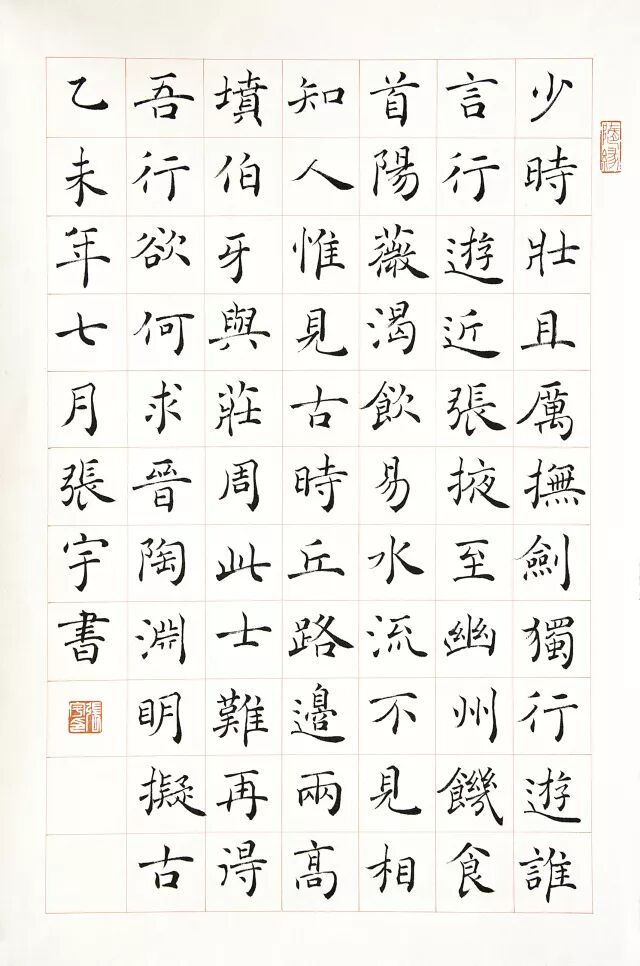 少時壯且厲撫劍獨行遊誰
言行遊近張掖至幽州饑食
首陽薇渴飲易水流不見相
知人惟見古時丘路邊兩高
墳伯牙與莊周此士難再得
吾行欲何求晉陶淵明擬古
乙未年七月張宇書
張宇印